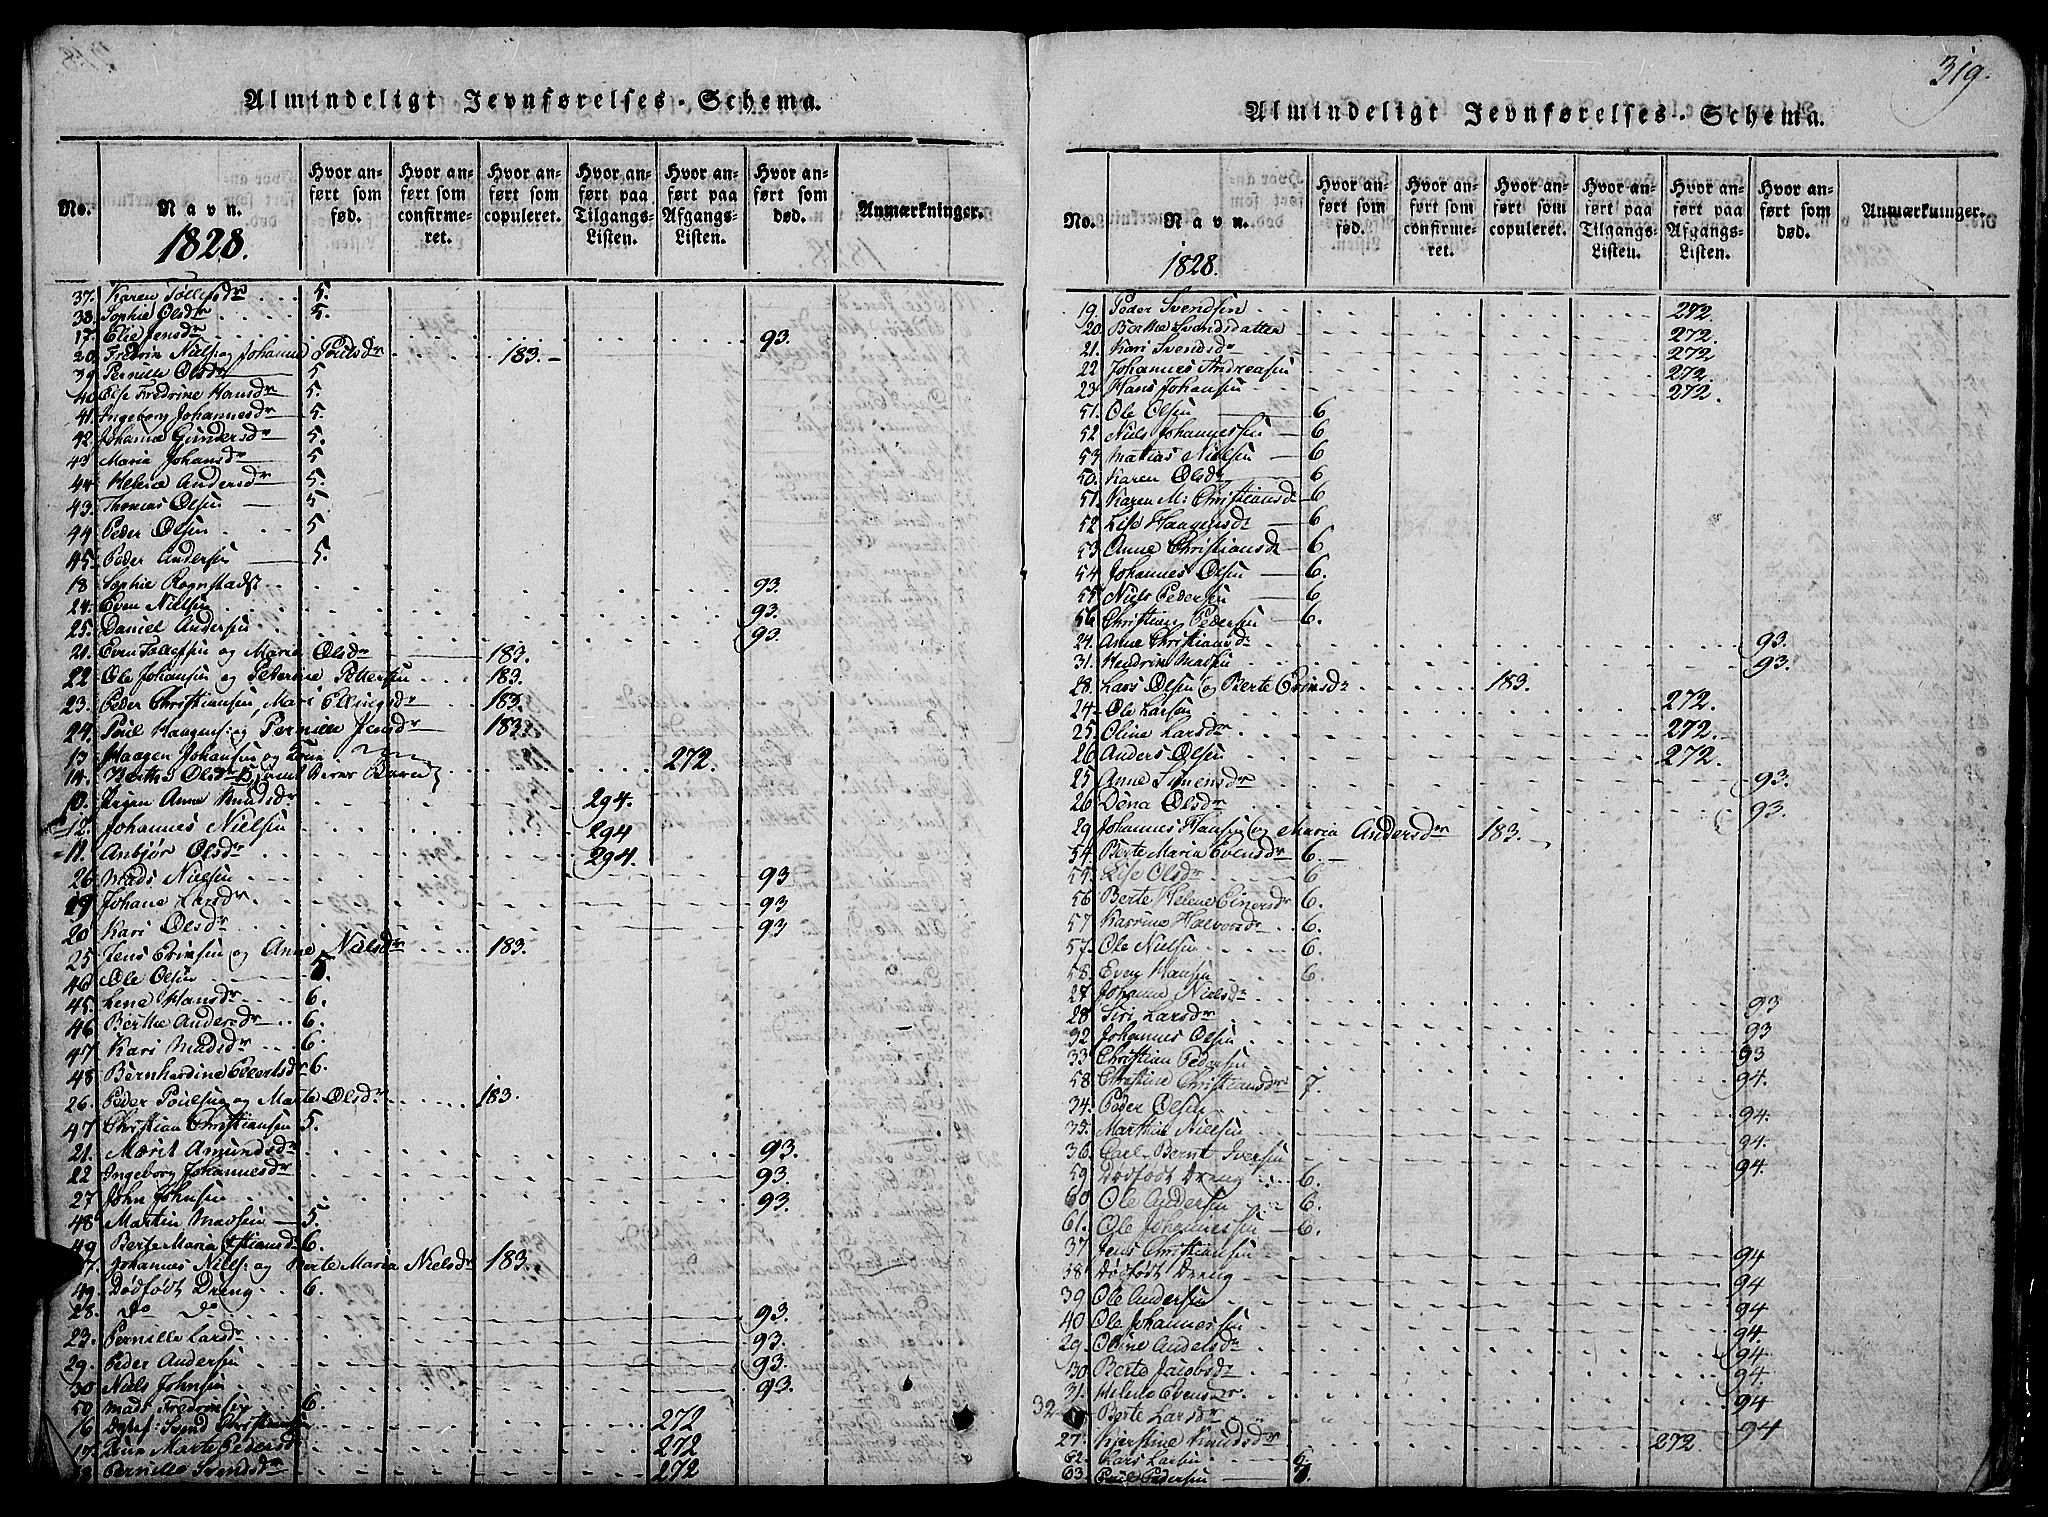 319.
Almindeligt Jevnførelses-Schema.
No. Navn. 1828. Hvor anført som fød. Hvor anført som confirmeret. Hvor anført som copuleret. Hvor anført paa Tilgangs-Listen. Hvor anført paa Afgangs-Listen. Hvor anført som død. Anmærkninger.
37. Karen Tollefsdr 5.
38. Sophie Olsdr 5.
17. Elie Jensdr 93.
20. Fredrin Niels: og Johanne Poulsdr 183.
39 Pernille Olsdr 5
40 Else Fredrine Hansdr 5.
41 Ingeborg Johannesdr 5.
42. Johanne Gundersdr 5.
43 Maria Johansdr 5.
44 Helene Andersdr 5.
43. Thomas Olsen 5
44 Peder Olsen 5
45. Peder Andersen 5.
18 Sophie Rognstads 93.
24. Even Nielsen 93.
25. Daniel Andersen 93.
21. Even Tollefsen og Maria Olsdr 183.
22 Ole Johansen og Peterine Pettersen 183.
23. Peder Christiansen, Mari Ellingsdr 183.
24. Poul Haagens: og Pernille Jensdr 183.
13 Haagen Johansen og Kone 272.
14. Berthe Olsdr
10. Anne Knudsdr 294.
12. Johannes Nielsen 294
11. Anbjør Olsdr 294.
26 Mads Nielsen 93
19 Johane Larsdr 93
20 Kari Olsdr 93
25 Jens Erinsen og Anne Nielsdr 183.
46 Ole Olsen 5.
45. Lene Hansdr 6.
46 Berthe Andersdr 6.
47 Kari Madsdr 6.
48 Bernhardine Ellertsdr 6.
26. Peder Poulsen og Marte Olsdr 183.
47 Christian Christiansen 5.
21. Marit Amundsdr 93.
22 Ingeborg Johannesdr 93.
27 John Johnsen 93.
48 Martin Madsen 5.
49 Berte Maria Christiansdr 6.
7. Johannes Niels: og Berte Maria Nielsdr 183.
49. Dødfødt Dreng 6.
28. Do Do 93.
23. Pernille Larsdr 93.
29. Peder Andersen 93.
30 Niels Johnsen 93.
50 Mads Fredriksen 6.
16 Svend Christiansen 272
17. Marte Pedersdr 272
Pernille Svendsdr 272
Almindeligt Jevnførelses-Schema.
No. Navn. 1828. Hvor anført som fød. Hvor anført som confirmeret. Hvor anført som copuleret. Hvor anført paa Tilgangs-Listen. Hvor anført paa Afgangs-Listen. Hvor anført som død. Anmærkninger.
19. Peder Svendsen 272.
20. Berthe Svendsdatter 272.
21. Kari Svendsdr 272
22 Johannes Andreasen 272.
23 Hans Johansen 272.
51. Ole Olsen 6
52 Niels Johannessen 6
53 Matias Nielsen 6
50. Karen Olsdr 6
51. Karen M: Christiansdr 6
52 Lise Haagensdr 6
53 Anne Christiansdr 6
54 Johannes Olsen 6.
55 Niels Pedersen 6
56 Christian Pedersen 6.
24. Anne Christiansdr 93.
31. Hendrin Madsen 93.
28. Lars Olsen og Berte Erinsdr 183.
24 Ole Larsen 272.
25. Oline Larsdr 272.
26 Anders Olsen 272.
25 Anne Simensdr 93.
26 Dena Olsdr 93.
29 Johannes Hansen og Maria Andersdr 183.
54. Berte Maria Evensdr 6.
55. Lise Olsdr 6
56 Berte Helene Einersdr 6.
57 Katrine Halvorsdr 6.
57. Ole Nielsen 6.
58. Even Hansen 6.
27 Johanne Nielsdr 93
28 Siri Larsdr 93
32 Johannes Olsen 93
33 Christian Pedersen 94.
58 Christine Christiansdr 7.
34. Peder Olsen 94.
35. Marthin Nielsen 94.
36. Carl Bernt Iversen 94.
59 Dødfødt Dreng 6.
60 Ole Andersen 6.
61. Ole Johannessen 6.
37 Jens Christiansen 94
38 Dødfødt Dreng 94
39 Ole Andersen 94
40 Ole Johannessen 94.
29. Oline Andersdr 94.
30 Berte Jacobsdr 94.
31. Helene Evensdr 94
32 Berte Larsdr 94
27. Kjerstine Knudsdr 272.
62. Lars Larsen 6.
63. Poul Pedersen